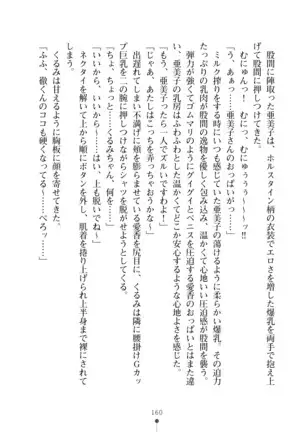 股間に陣取った亜美子は、ホルスタイン柄の衣装でエロさを増した爆乳を両手で抱え上
げて股間に押しつけてきた。
むにゅん！　むにっ、むにゅうぅぅ〜〜ッ!!
「う、あぁっ……亜美子さんのおっぱいがっ……」
ミルク搾りをする時にいつも感じていた亜美子の蕩けるように柔らかな爆乳。その迫力
たっぷりの乳肉が股間の逸物を優しく包み込み、温かくて心地いい圧迫感が股間を襲う。
弾力が強くてゴムマリのようにグイグイとペニスを圧迫する愛香のおっぱいとはまた違
う、亜美子の乳房はふわふわとした温かくてどこか安心するような心地よさを感じた。
「も〜、亜美子ったら一人でズルいですわよ！」
「じゃぁ、あたしはこっちを弄っちゃおうかな〜」
出遅れてしまい不満げに頬を膨らませている愛香を尻目に、くるみは隣に腰掛けGカッ
プ巨乳を二の腕に押しつけながらシャツを脱がせようとしてくる。
「ちょ、ちょっと……くるみちゃん、何を……」
「いいから、いいから〜……はい、上も脱いでね」
ネクタイを解いて上から順にボタンを外し、肌着を捲り上げられ上半身まで裸にされて
しまう。
くるみは甘えるように胸板に顔を寄せてきた。
「ふふ、徹くんのココも硬くなってる〜……ぺろっ……」
160